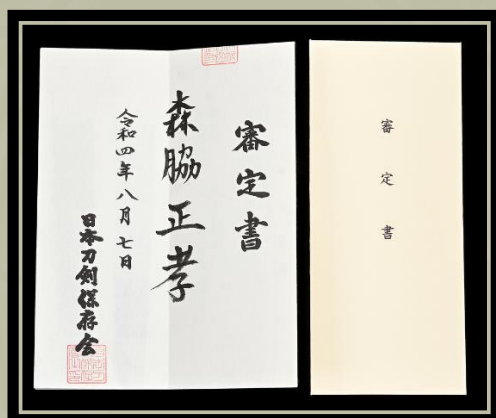 審定書
森脇正孝
令和四年八月七日
日本刀剣保存会
審定書